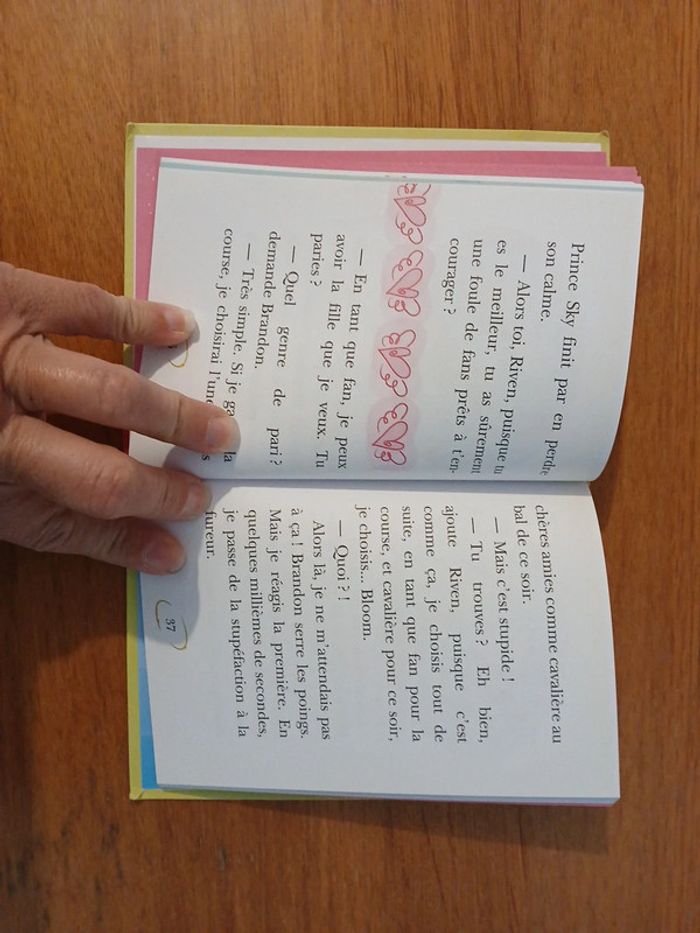 Prince Sky finit par en perdre
son calme.
— Alors toi, Riven, puisque tu
es le meilleur, tu as sûrement
une foule de fans prêts à t'en-
courager ?
— En tant que fan, je peux
avoir la fille que je veux. Tu
paries ?
— Quel genre de pari ?
demande Brandon.
— Très simple. Si je la
course, je choisirai
chères amies comme cavalière au
bal de ce soir.
— Mais c'est stupide !
— Tu trouves ? Eh bien,
ajoute Riven, puisque c'est
comme ça, je choisis tout de
suite, en tant que fan pour la
course, et cavalière pour ce soir,
je choisis... Bloom.
— Quoi ? !
Alors là, je ne m'attendais pas
à ça ! Brandon serre les poings.
Mais je réagis la première. En
quelques millièmes de secondes,
je passe de la stupéfaction à la
fureur.
37